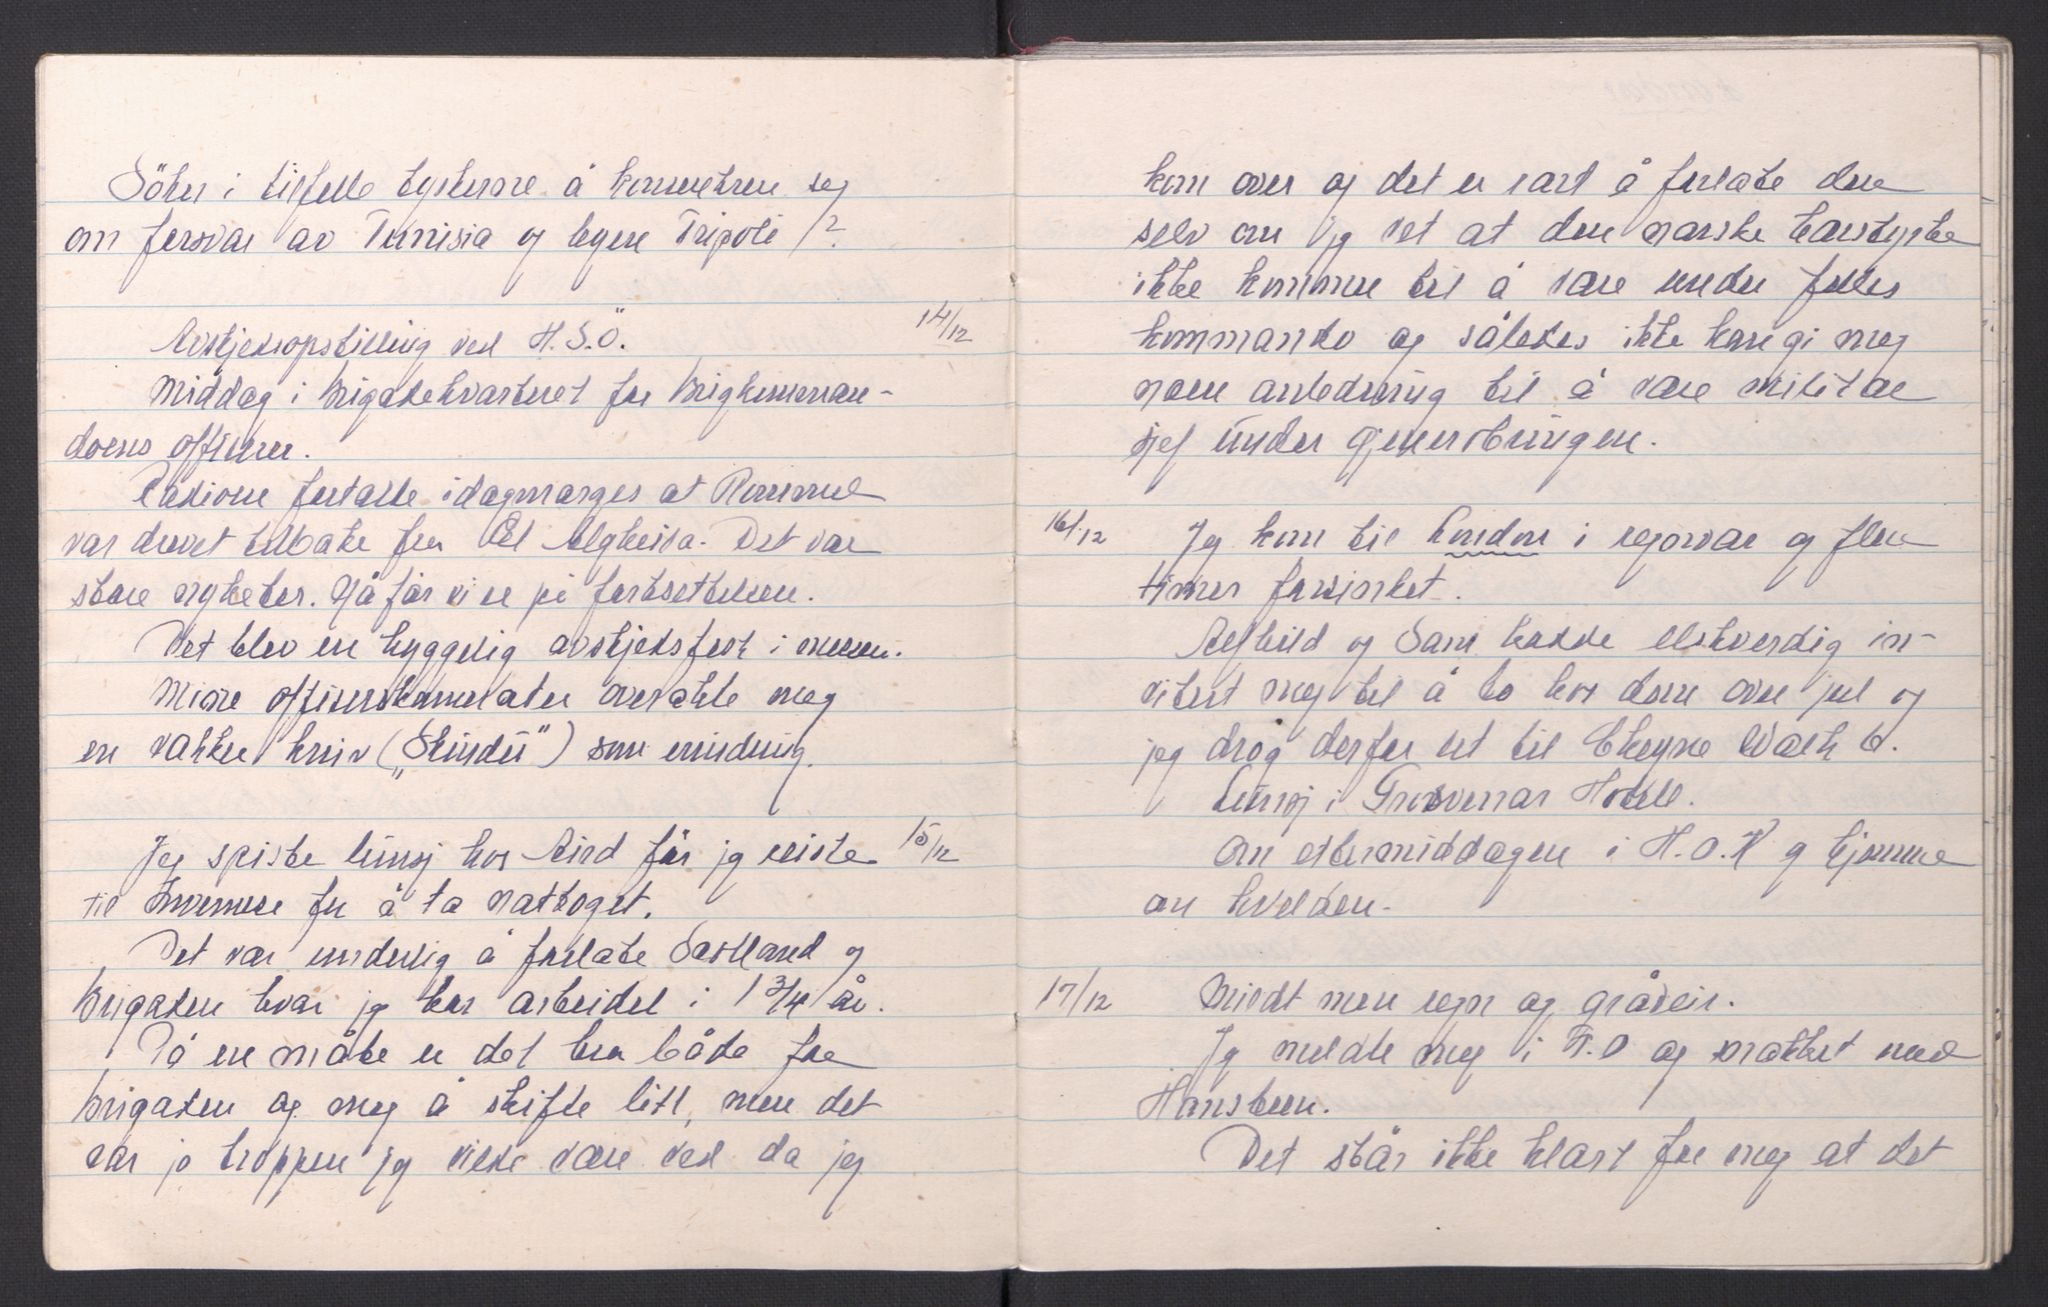 Söker i tilfelle tyskerne å konsentrere seg
om forsvar av Tunisia og legere Tripoli /?
14/12
Avskjedsopstilling ved H.S.Ö.
Middag i brigadekvarteret for brigkomman-
doens offiserer.
Radioen fortalte idagmorges at Rommel
var drevet tilbake fra El Algheila. Det var
store nyheter. Nå får vi se på fortsettelsen.
Det blev en hyggelig avskjedsfest i messen.
Mine offiserskamerater overakte meg
en vakker kniv („Skindú") som erindring.
15/12
Jeg spiste lunsj hos Aird før jeg reiste
til Inverness for å ta nattoget.
Det var underlig å forlate Scotland og
brigaden hvor jeg har arbeidet i 1 3/4 år.
På en måte er det bra både for
brigaden og meg å skifte litt, men det
var jo troppen jeg vilde være ved da jeg
kom over og det er sårt å forlate den
selv om jeg vet at den norske hærstyrke
ikke kommer til å være under felles
kommando og således ikke kan gi meg
noen anledning til å være militær
sjef under gjenerobringen.
16/12
Jeg kom til London i regnvær og flere
timer forsinket.
Alfhild og Sam hadde elskverdig in-
vitert meg til å bo hos dem over jul og
jeg drog derfor ut til Cheyne Walk 6.
Lunsj i Grosvenor Hotell.
Om ettermiddagen i H.O.K og hjemme
om kvelden.
17/12
Mildt men regn og gråvær.
Jeg meldte meg i F.O og snakket med
Hansteen.
Det står ikke klart for meg at det